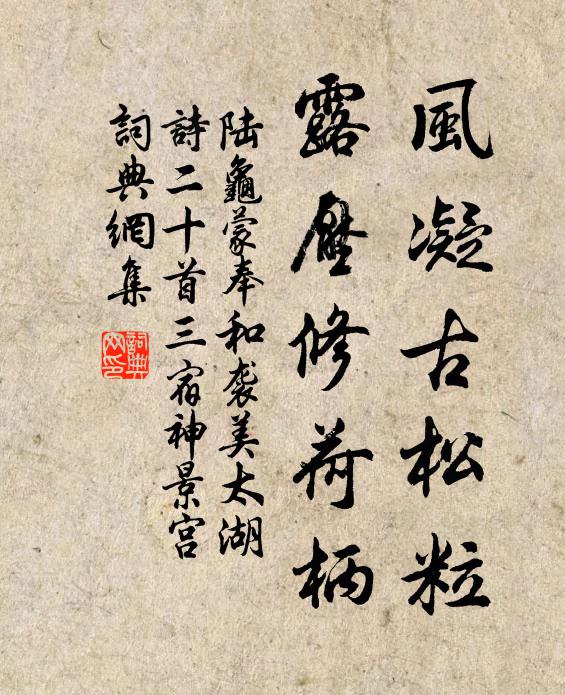 風凝古松粒
露壓修荷柄
陸龜蒙奉和袭美太湖
詩二十首三宿神景宫
詞典網集
詞典
网印